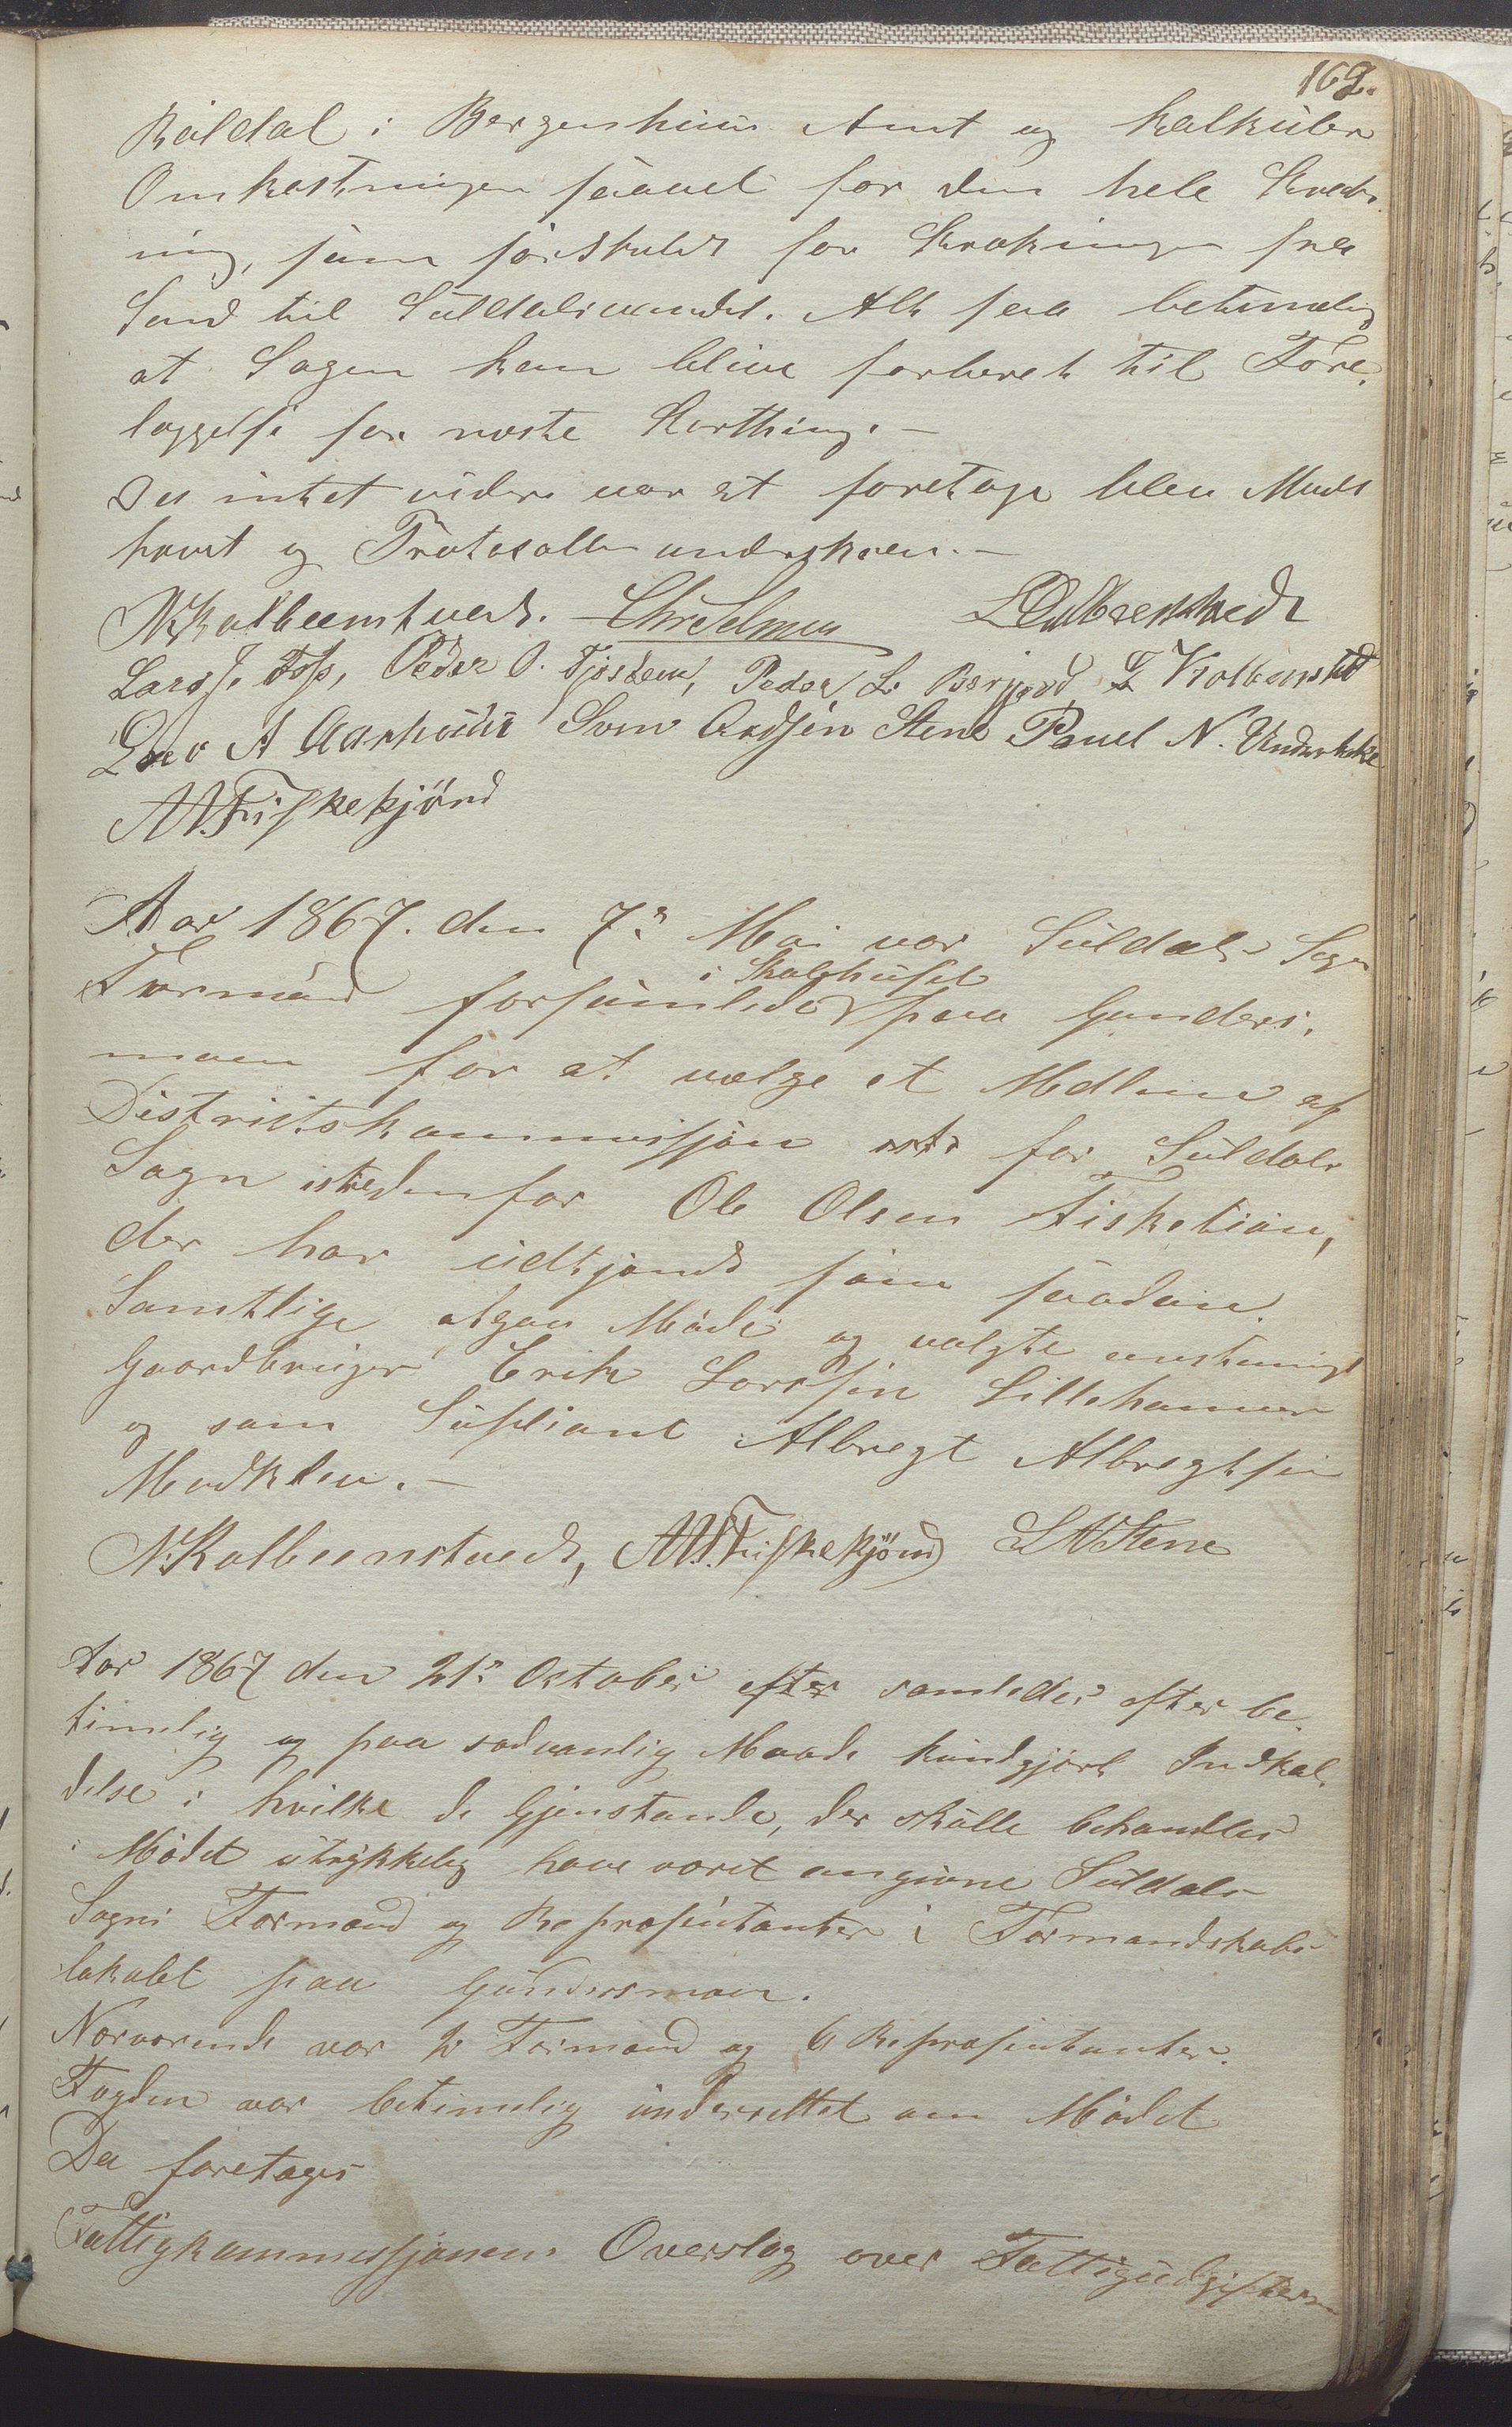 162.
Røldal i Bergenhuus Amt og kalkulere
Omkostningen saavel for den hele Stræk-
ning, som særskildt for Strækningen fra
Sand til Suldalsvandet. Alt saa betimelig
at Sagen kan blive forberedt til Fore-
læggelse for næste Storthing. —
Da intet videre var at foretage blev Mødet
hævet og Protocollen underskreven. —
N. Kolbeenstvedt. Chr Selmer L Odbrensted
Lars J. Foss, Peder O. Fjosdem, Peder L. Bergord L Kolbenstvdt
Lars A Aarhuus Svern Andsen Stene Poul N. Underbakke
A A. Fiskekjönd
Aar 1867. den 7de Mai var Suldals Sogns
Formænd forsamlede i Skolehuset paa Gunders-
moen for at vælge et Medlem af
Districtskommissjon for Suldals
Sogn istedenfor Ole Olsen Fisketjøn,
der har udtjendt som saadan.
Samtlige afgav Møde og valgte enstemigt
Gaardbruger Erik Larssen Lillehammer
og som Supliant Albregt Albregtsen
Modkleu. —
N. Kolbeenstvedt, A A. Fiskekjönd L A Stene
Aar 1867 den 21de October efter samledes efter be-
timelig og paa sædvanlig Maade kundgjort Indkal-
delse i hvilke de Gjenstande, der skulle behandles
i Mødet utrykkelig have været angivne Suldals
Sogns Formænd og Repræsentanter i Formandskabs
lokalet paa Gundersmoen.
Nærværende var 2 Formænd og 6 Repræsentanter.
Fogden var betimelig underrettet om Mødet
Da foretages
Fattigkommissjonens Overslag over Fattigudgifterne